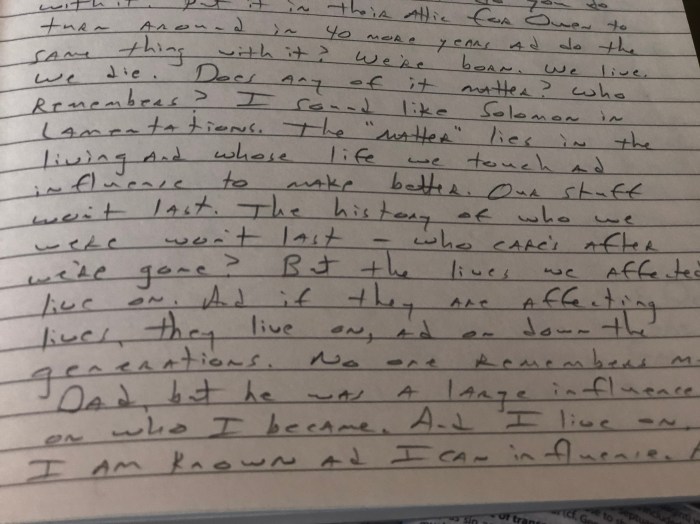 with it. Put it in their Attic for Owen to
turn Around in 40 more years Ad do the
SAme thing with it? We're born. We live.
We die. Does Any of it matter? Who
Remembers? I sound like Solomon in
LAmentAtions. The "mAtter" lies in the
living And whose life we touch Ad
influence to mAke better. Our stuff
won't lAst. The history of who we
were won't lAst - who cAres After
we're gone? But the lives we Affected
live on. And if they Are Affecting
lives, they live on, Ad on down the
generAtions. No one Remembers m
DAd, but he wAs A lArge influence
on who I becAme. And I live on.
I Am Known Ad I CAn influence.
of tran